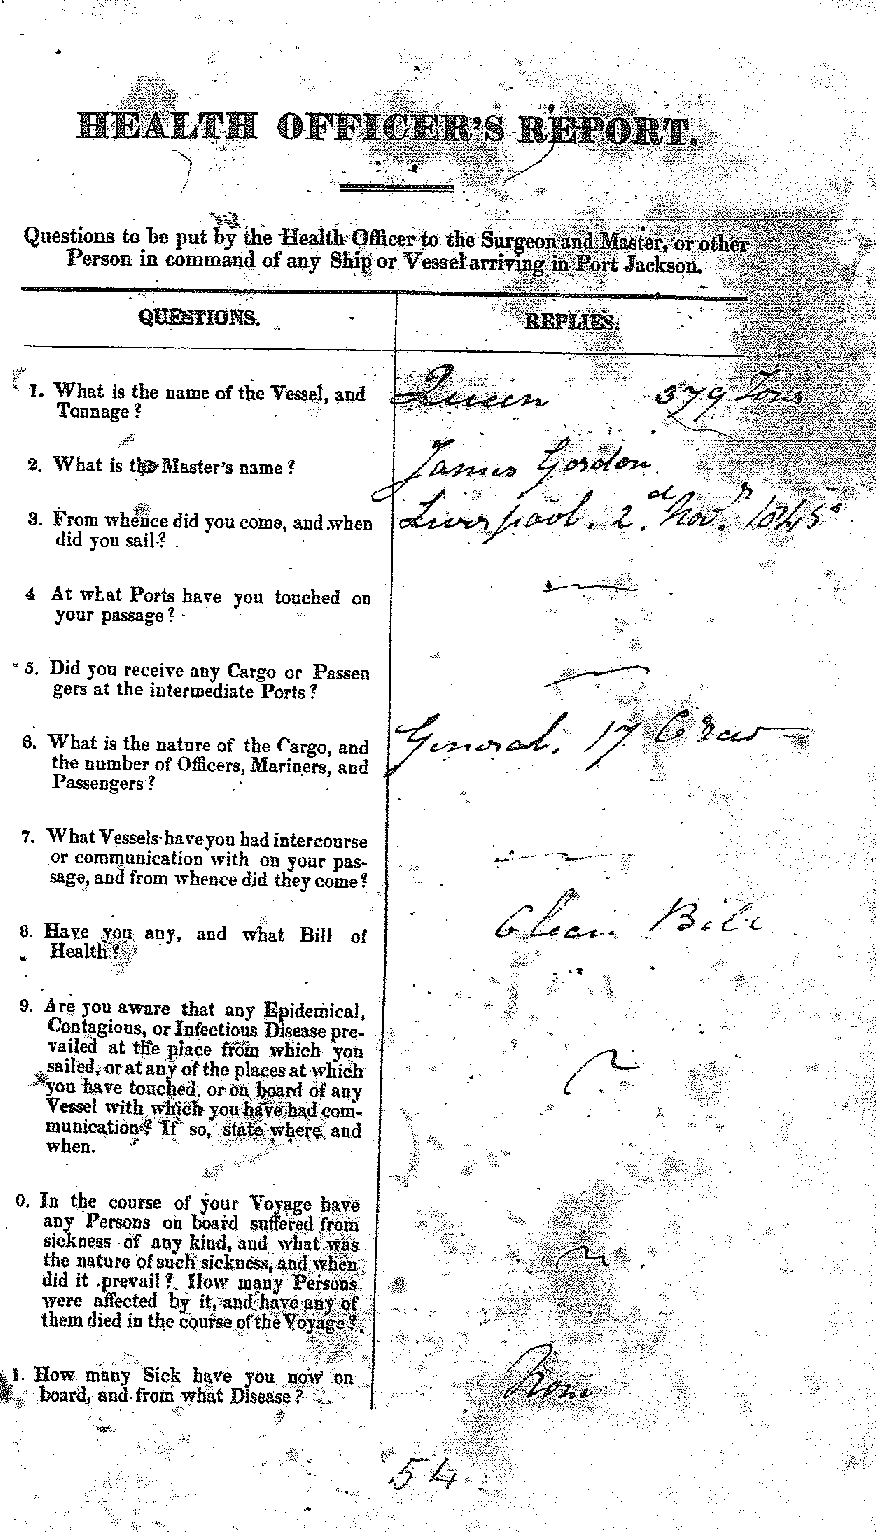 HEALTH OFFICER'S REPORT.
Questions to be put by the Health Officer to the Surgeon and Master, or other
Person in command of any Ship or Vessel arriving in Port Jackson.
QUESTIONS. REPLIES.
1. What is the name of the Vessel, and Queen 379 Tons
Tonnage?
2. What is the Master's name? James Gordon
3. From whence did you come, and when Liverpool. 2d. Novr. 1845
did you sail?
4 At what Ports have you touched on —
your passage?
5. Did you receive any Cargo or Passen —
gers at the intermediate Ports?
6. What is the nature of the Cargo, and General. 17 Crew
the number of Officers, Mariners, and
Passengers?
7. What Vessels have you had intercourse
or communication with on your pas- —
sage, and from whence did they come?
8. Have you any, and what Bill of Clean Bill
Health?
9. Are you aware that any Epidemical,
Contagious, or Infectious Disease pre-
vailed at the place from which you
sailed, or at any of the places at which
you have touched, or on board of any
Vessel with which you have had com-
munication? If so, state where, and
when.
0. In the course of your Voyage have
any Persons on board suffered from
sickness of any kind, and what was
the nature of such sickness, and when
did it prevail? How many Persons
were affected by it, and have any of
them died in the course of the Voyage?
1. How many Sick have you now on None
board, and from what Disease?
54